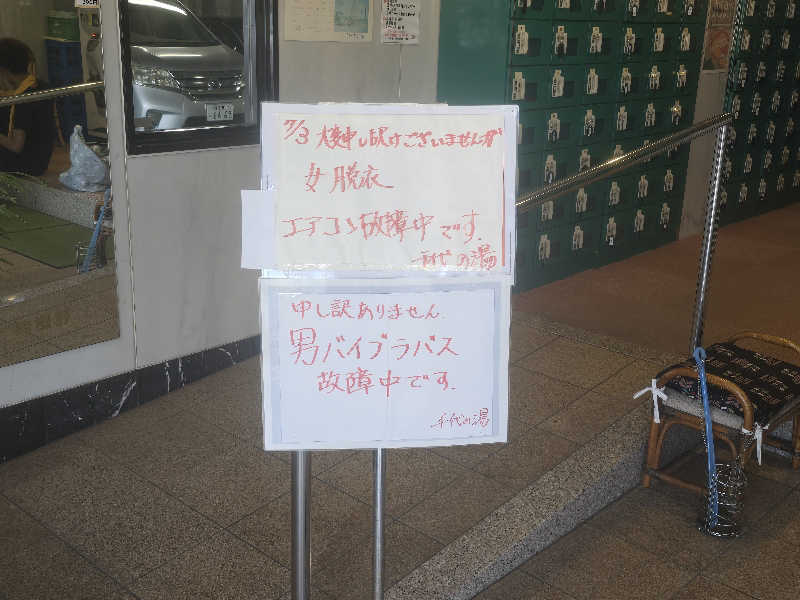 7/3 大変申し訳けございませんが
女 脱衣
エアコン故障中です.
千代の湯
申し訳ありません.
男バイブラバス
故障中です.
千代の湯